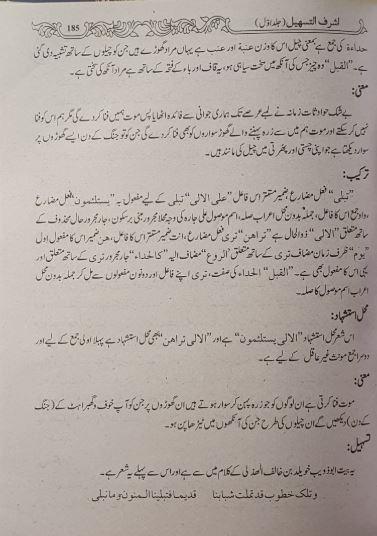 اشرف التسهيل (جلد اوّل) 185
حداءة کی جمع ہے بمعنی چیل اس کا وزن عنبة اور عنب ہے یہاں مراد گھوڑے ہیں جن کو چیلوں کے ساتھ تشبیہ دی گئی
ہے۔ "القبل" وہ چیز جس کی آنکھ میں سخت سیاہی ہو، یہ قاف اور باء کے فتحہ کے ساتھ ہے مراد آنکھ کی سختی ہے۔
معنی:
بے شک حوادثات زمانہ نے لمبے عرصے تک ہماری جوانی سے فائدہ اٹھایا پس موت ہمیں فنا کر دے گی مگر ہم اس کو فنا
نہیں کر سکتے اور موت ہم میں سے زرہ پہننے والے گھوڑ سواروں کو بھی فنا کر دے گی جن کو تو جنگ کے دن ایسے گھوڑوں پر
سوار دیکھتا ہے جو اپنی چستی اور پھرتی میں چیل کی مانند ہیں۔
ترکیب:
"تبلی" فعل مضارع ضمیر مستتر اس کا فاعل "علی الالی" تبلی کے لیے مفعول بہ "یستلئمون" فعل مضارع
، واو جمع اس کا فاعل، جملہ بدون محل اعراب صلہ، اسم موصول علی جارہ کی وجہ محلا مجرور مبنی بر سکون، جار مجرور حال محذوف کے
ساتھ متعلق "الالی" ذوالحال ہے "تراهن" تری فعل مضارع، انت ضمیر مستتر اس کا فاعل، هن ضمیر اس کا مفعول اول
"یوم" ظرف زمان مضاف تری کے ساتھ متعلق "الروع" مضاف الیہ "کالحداء" جار مجرور تری کے ساتھ متعلق اور
یہی اس کا مفعول بھی ہے۔ "القبل" الحداء کی صفت، تری اپنے فاعل اور دونوں مفعولوں سے مل کر جملہ بدون محل
اعراب اسم موصول کا صلہ۔
محل استشہاد:
اس شعر محل استشہاد "الالی یستلئمون" ہے اور "الالی تراهن" بھی محل استشہاد ہے پہلا اولی جمع کے لیے اور
دوسرا جمع مونث غیر عاقل کے لیے ہے۔
معنی:
موت فنا کرتی ہے ان لوگوں کو جو زرہ پہن کر سوار ہوتے ہیں ان گھوڑوں پر جن کو آپ خوف و گھبراہٹ کے (جنگ
کے دن) دیکھیں گے ان چیلوں کی طرح جن کی آنکھوں میں ٹیڑھا پن ہو۔
تسہیل:
یہ بیت ابو ذویب خویلد بن خالف الهذلی کے کلام میں سے ہے اور اس سے پہلے یہ شعر ہے۔
وتلک خطوب قد تملت شبابنا قدیما فتبلینا المنون وما نبلی